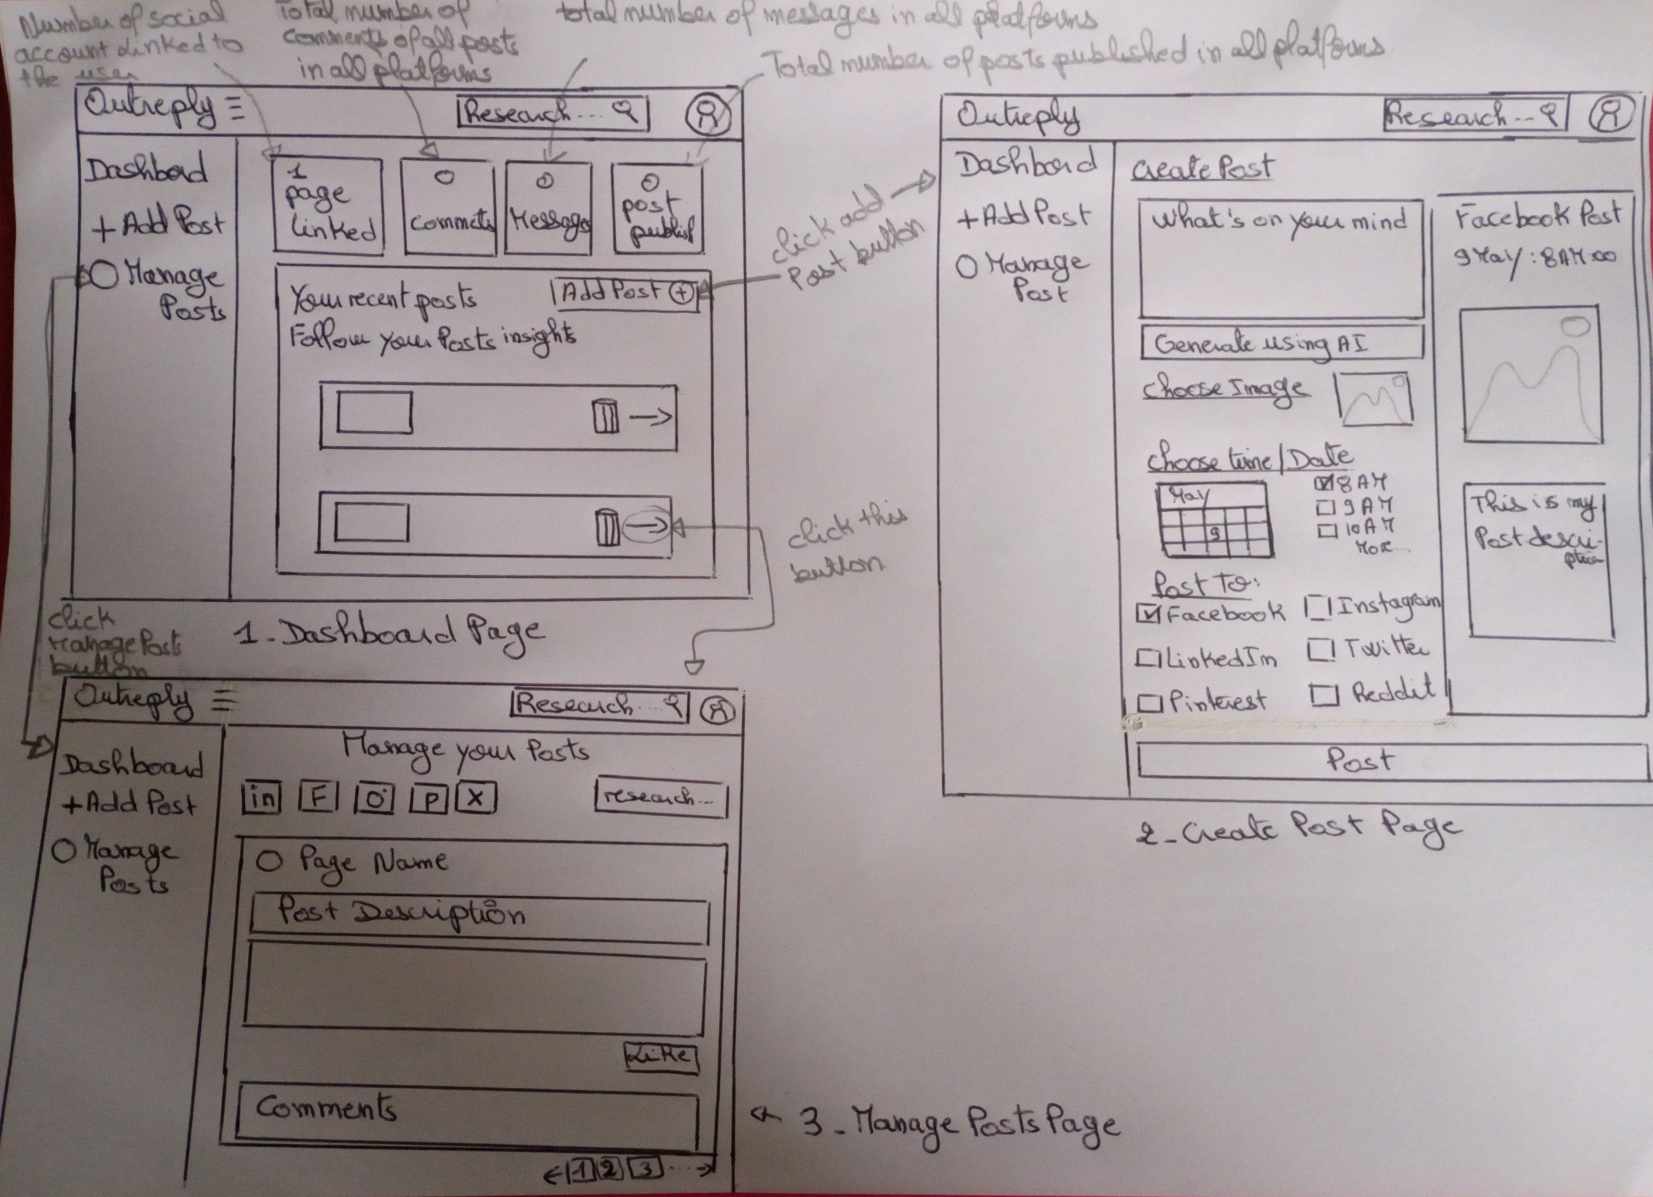 Number of social
account linked to
the user
Total number of
comments of all posts
in all platforms
total number of messages in all platforms
Total number of posts published in all platforms
Outreply
Research...
Dashboard
+ Add Post
Manage
Posts
1
page
linked
0
Comments
0
Message
0
post
publish
Your recent posts
Add Post +
Follow your Posts insight
click add
Post button
click this
button
click
Manage Posts
button
1 - Dashboard Page
Outreply
Research...
Dashboard
+ Add Post
Manage
Post
Create Post
What's on your mind
Generate using AI
Choose Image
Choose time / Date
May
9
8 AM
9 AM
10 AM
Post To:
Facebook
Instagram
LinkedIn
Twitter
Pinterest
Reddit
Facebook Post
9 May : 8AM:00
This is my
Post descri-
ption
Post
2 - Create Post Page
Outreply
Research...
Dashboard
+ Add Post
Manage
Posts
Manage your Posts
in F O P X
research...
Page Name
Post Description
Like
Comments
1 2 3 ...
3 - Manage Posts Page